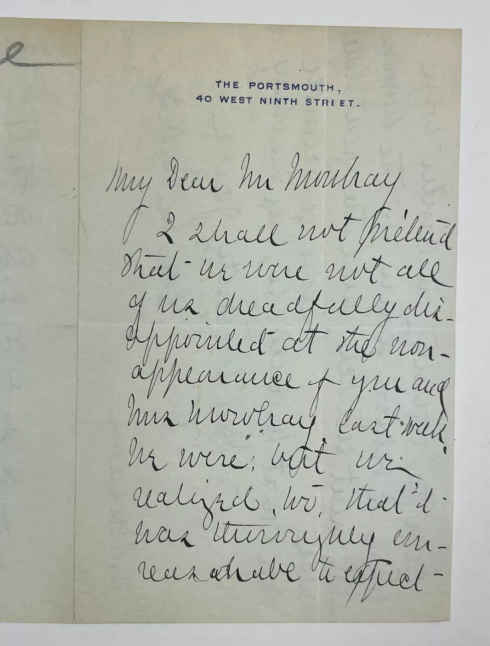 e
THE PORTSMOUTH,
40 WEST NINTH STREET.
My Dear Mr Mowbray
I shall not pretend
that we were not all
of us dreadfully dis-
appointed at the non-
appearance of you and
Mrs Mowbray last week.
We were; but we
realized, too, that it
was thoroughly un-
reasonable to expect-